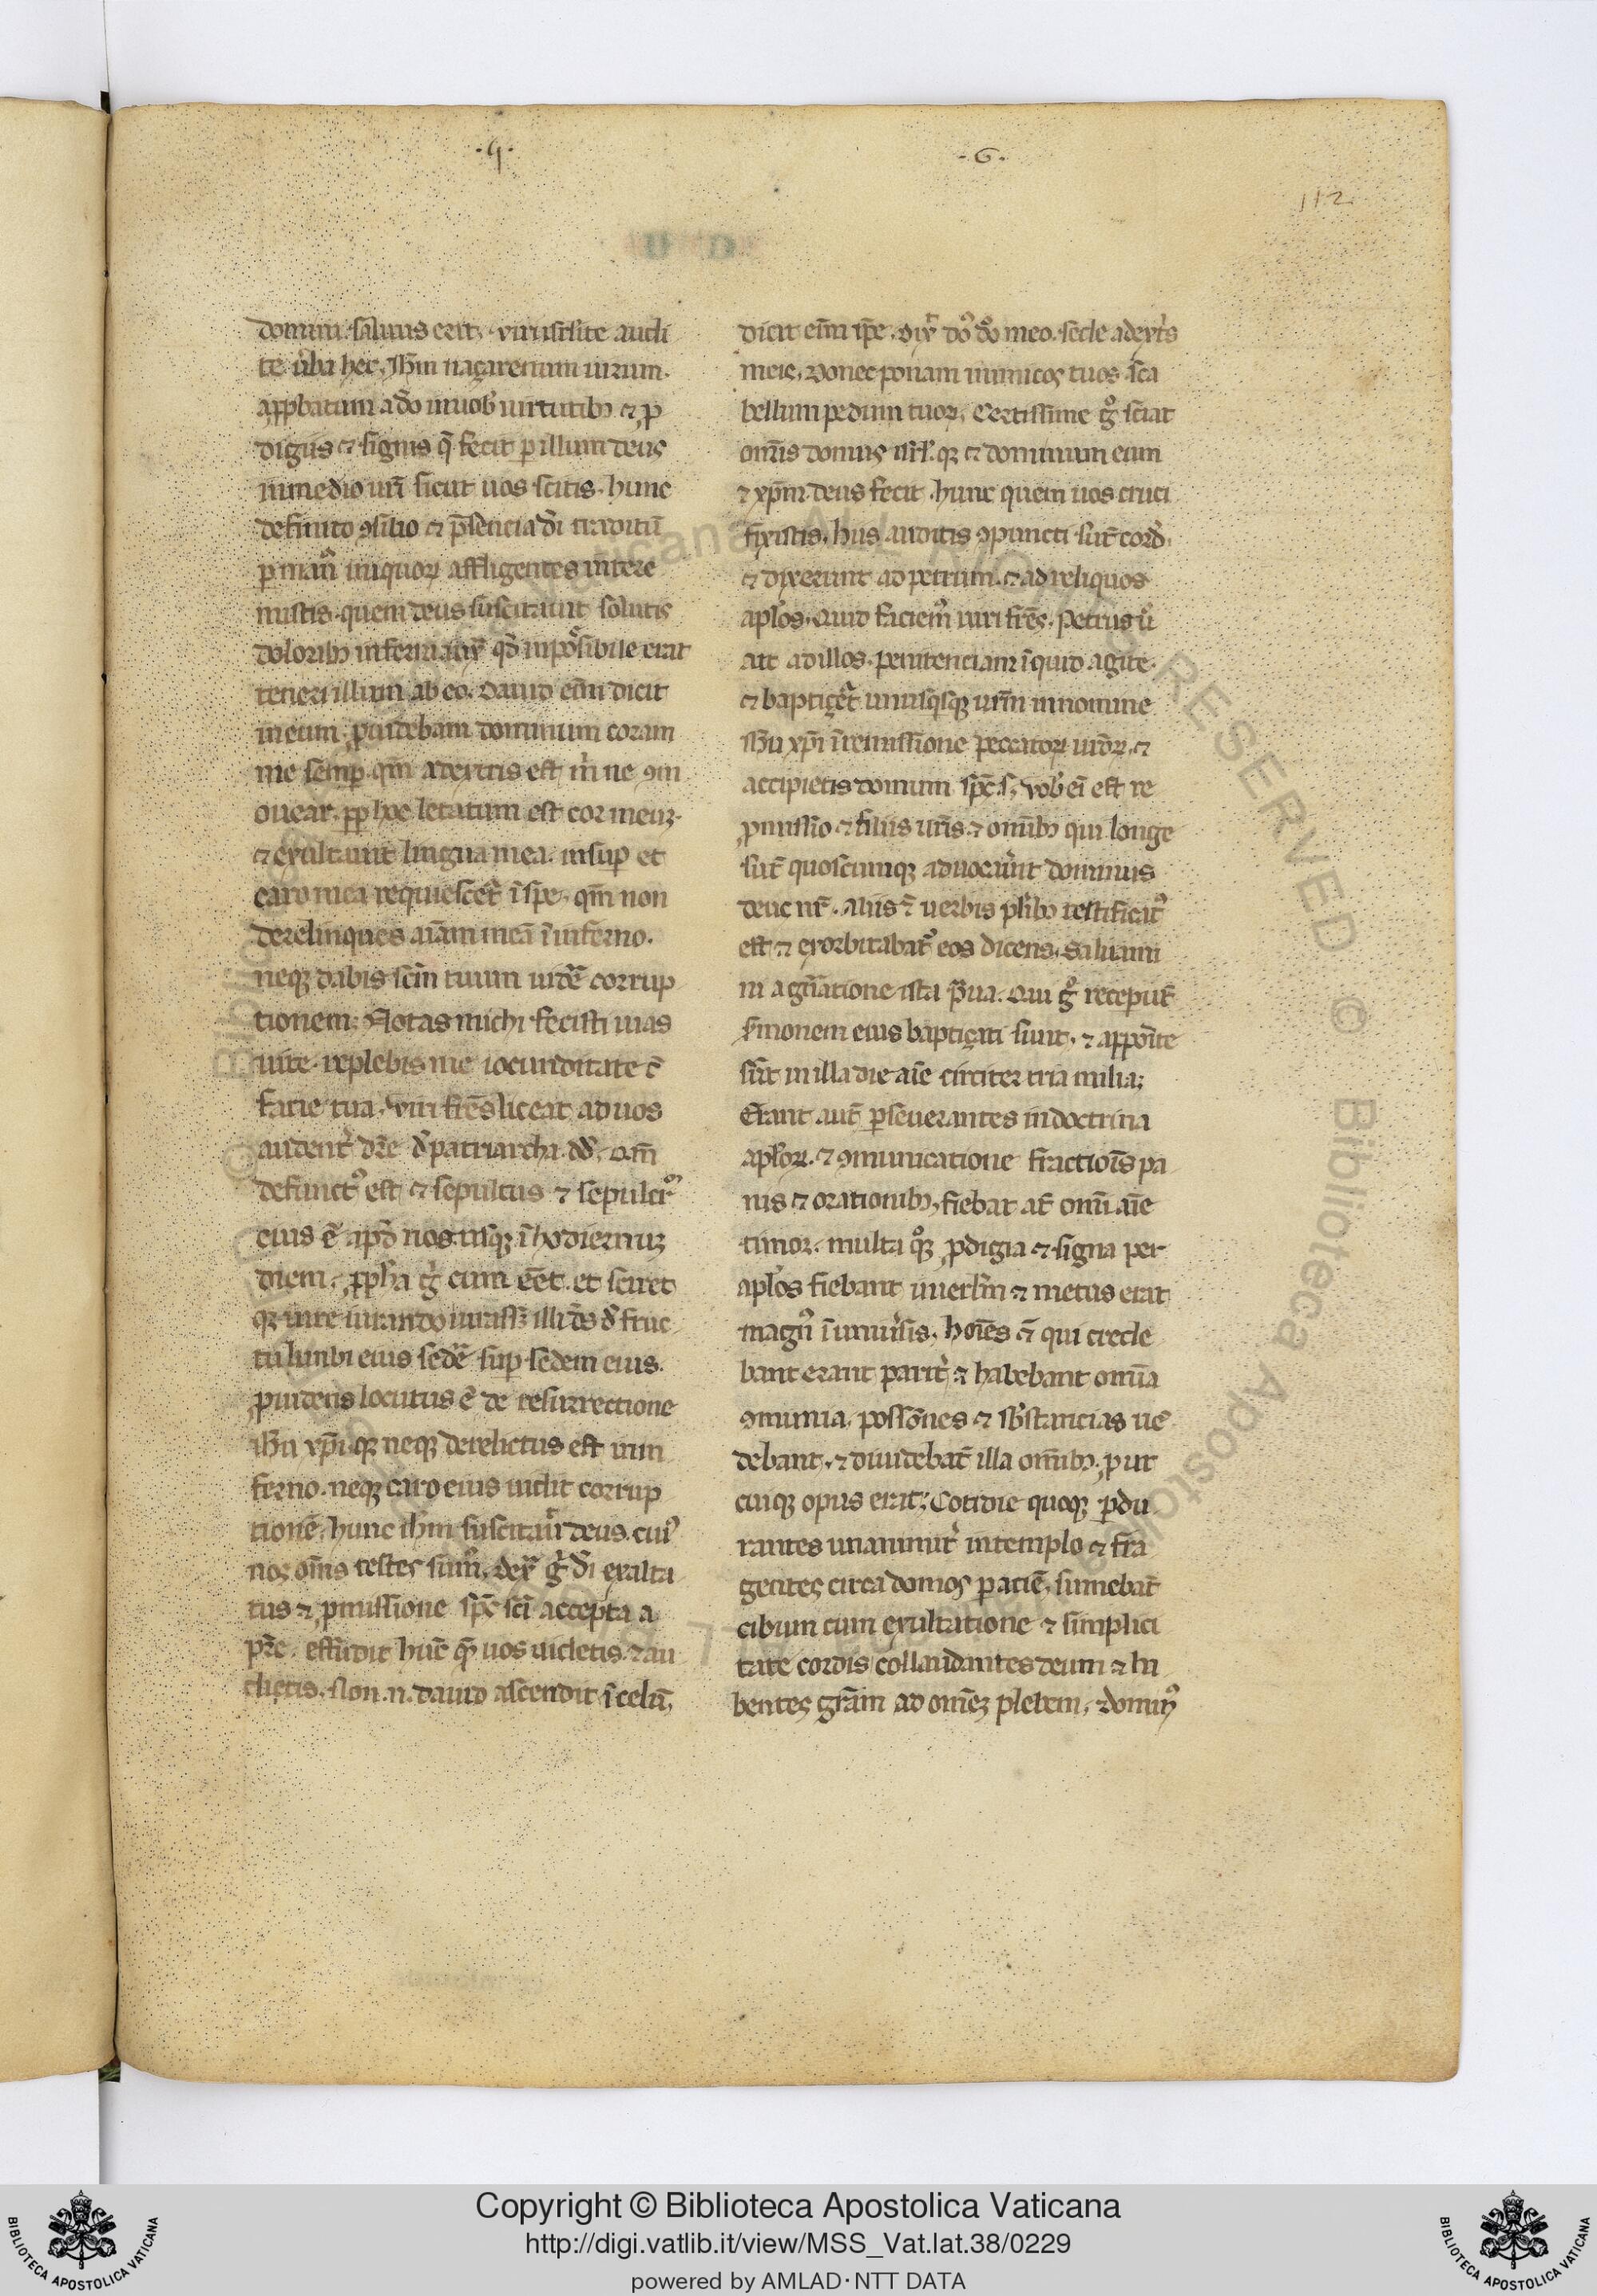 .q.
.6.
112
domini. saluus erit. viri isrlite audi
te ūba hec. Ihm naçarenum uirum.
approbatum a do in uob uirtutib; ⁊ p
digiis ⁊ signis q̄ fecit per illum deus
in medio urī sicut uos scitis. hunc
definito ꝯsilio ⁊ p̄sencia dī traditū
ꝑ manꝰ iniquoꝝ affligentes intere
mistis. quem deus suscitauit solutis
dolorib; inferni iuxͣ qd inposibile erat
teneri illum ab eo. Dauid eni dicit
in eum. ꝓuidebam dominum coram
me semꝑ. qm̄ a dextris est m̄ ne ꝯm
ouear. ꝓp hoc letatum est cor meuꝫ.
⁊ exultauit lingua mea. insuꝑ et
caro mea requiescet ī spe. qm̄ non
derelinques aīam meā ī inferno.
neqꝫ dabis scm̄ tuum uidē corrup
tionem. Notas michi fecisti uias
uite. replebis me iocunditate c̄
facie tua. Viri frēs liceat ad uos
audent dr̄e d patriarcha dd. qm̄
defunctꝰ est ⁊ sepultus ⁊ sepulcrꝰ
eius ē apd nos usqꝫ ī hodiernuꝫ
diem. ꝓpha g cum eēt. et sciret
qꝫ iure iurando iurassꝫ illi ds d fruc
tu lunbi eius sedē suꝑ sedem eius.
ꝓuidens locutus ē de resurrectione
ihu xp̄i. qꝫ neqꝫ derelictus est inin
ferno. neqꝫ caro eius uidit corrup
tionē. hunc ihm suscitauit deus. cuiꝰ
nos oms testes sumꝰ. dex g dī exalta
tus ⁊ ꝓmissione spc sci accepta a
pr̄e. effudit huc q̄ uos uidetis ⁊ au
ditis. Non.n. dauid ascendit ī celū;
dicit eni ipe. Dix dos do meo. sede a dextis
meis. Donec ponam inimicos tuos sca
bellum pedum tuoꝝ. Certissime g sciat
omis domus isrl. qꝫ ⁊ dominum eum
⁊ xpm. deus fecit. hunc quem uos cruci
fixistis. hiis auditis ꝯpuncti sut cord.
⁊ dixerunt ad petrum. ⁊ ad reliquos
aplos. Quid faciemꝰ uiri frēs. Petrus u
ait ad illos. penitenciam īquid agite.
⁊ baptiçet unusqsqꝫ urm in nomine
Ihu xpi ī remissione peccatoꝝ uroꝝ. ⁊
accipietis donum spc s. vob ei est re
ꝓmissio ⁊ filiis uris. ⁊ omib; qui longe
sut quoscumqꝫ aduocauit dominus
deus nr. Aliis ē uerbis plib; testificatꝰ
est ⁊ exorbitabat eos dicens. Saluami
ni a gnatione ista praua. Qui g receput
smonem eius baptiçati sunt. ⁊ appoite
sut in illa die aīe circiter tria milia;
Erant aut ꝑseuerantes in doctrina
aploꝝ. ⁊ ꝯmunicatione fractiois pa
nis ⁊ orationib;. fiebat at omi aīe
timor. multa qoqꝫ ꝓdigia ⁊ signa per
aplos fiebant in ierlm ⁊ metus erat
magnꝰ ī uniuisis. hoies ē qui crede
bant erant parit ⁊ habebant omia
ꝯmunia. possoines ⁊ sbstancias uē
debant. ⁊ diuidebat illa omib;. ꝓ ut
cuiqꝫ opus erat; Cotidie quoqꝫ ꝑdu
rantes unanimit in templo ⁊ frā
gentes circa domos paneē. sumebat
cibum cum exultatione ⁊ simplici
tate cordis collaudantes deum ⁊ ha
bentes gram ad omeꝫ plebem. ⁊ dominꝰ
Copyright © Biblioteca Apostolica Vaticana
http://digi.vatlib.it/view/MSS_Vat.lat.38/0229
powered by AMLAD·NTT DATA
BIBLIOTECA APOSTOLICA VATICANA
BIBLIOTECA APOSTOLICA VATICANA